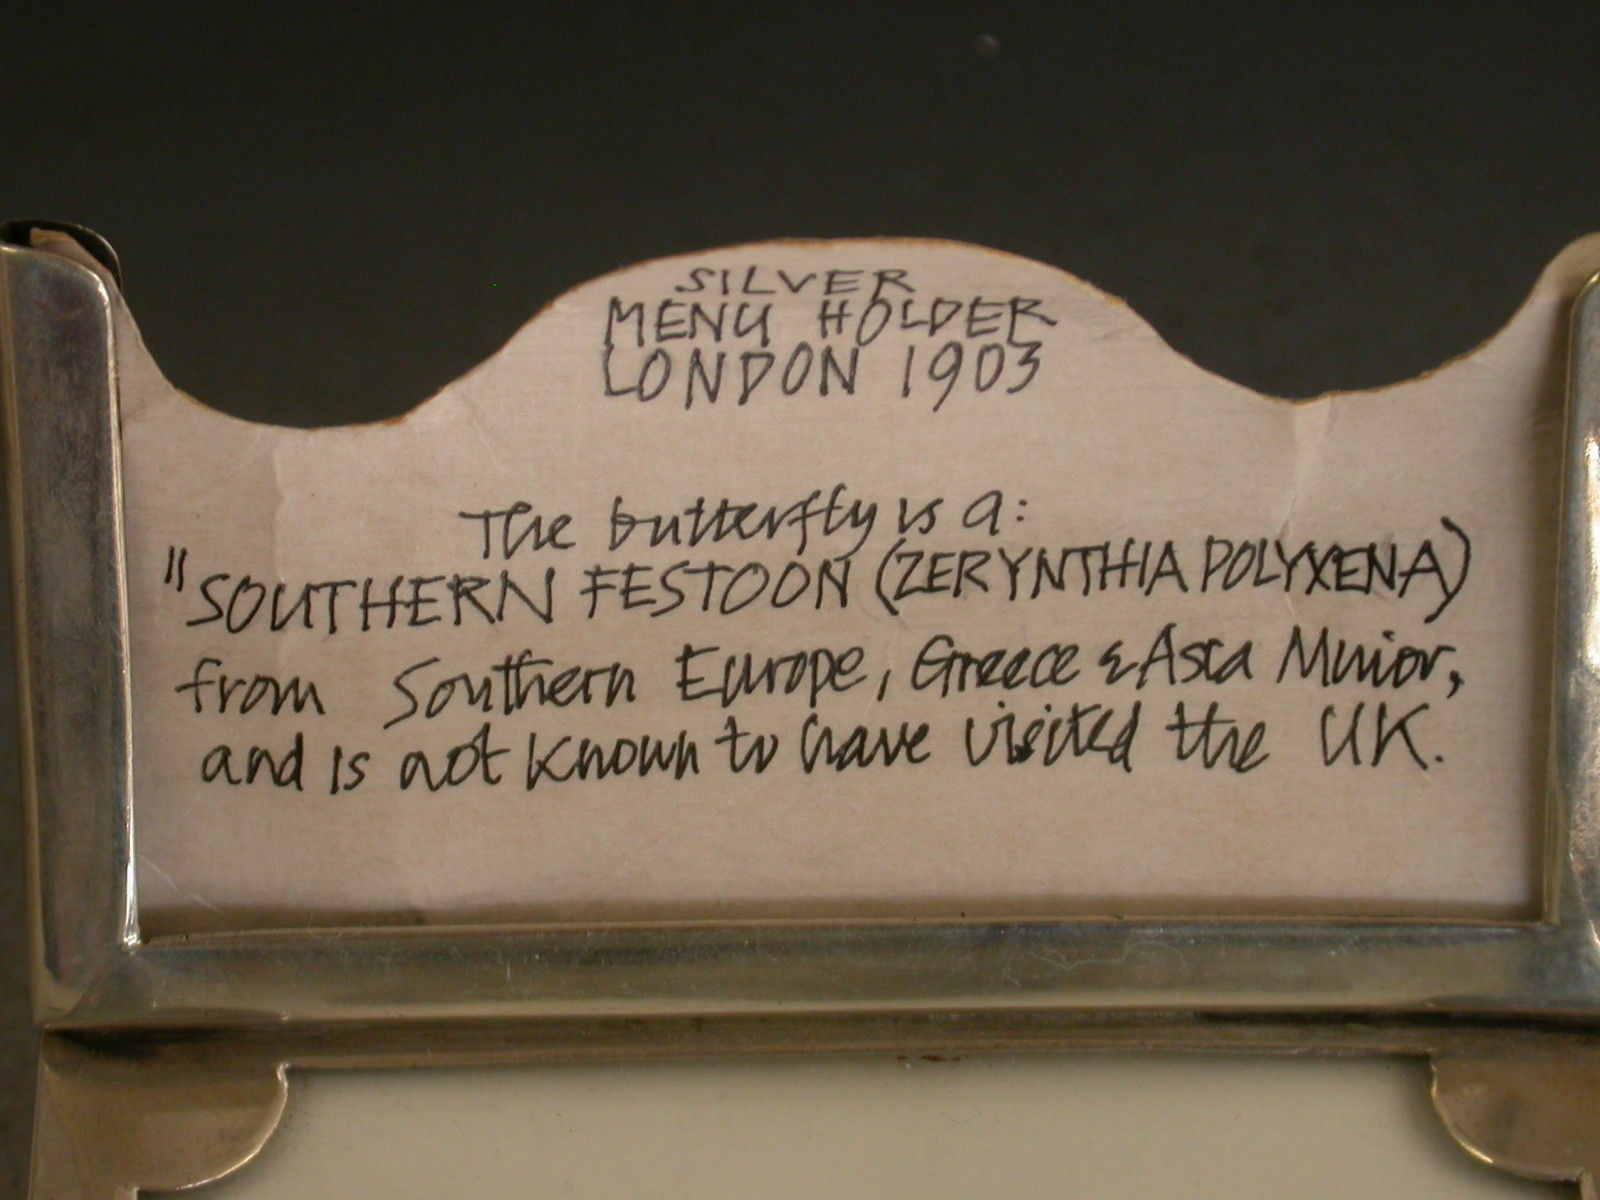 SILVER
MENU HOLDER
LONDON 1903
The butterfly is a:
"SOUTHERN FESTOON (ZERYNTHIA POLYXENA)
from Southern Europe, Greece & Asia Minor,
and is not known to have visited the UK.